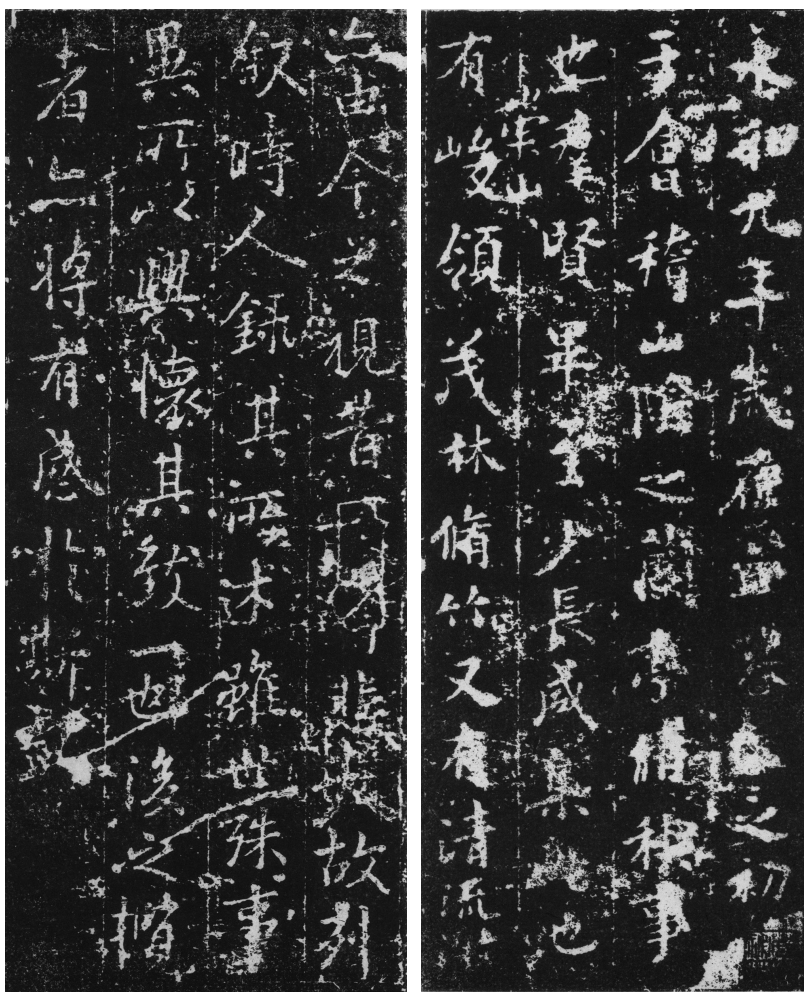 永和九年歲在癸丑暮春之初
于會稽山陰之蘭亭脩稧事
也羣賢畢至少長咸集此地
有崇山峻領茂林脩竹又有清流
亦由今之視昔悲夫故列
叙時人錄其所述雖世殊事
異所以興懷其致一也後之攬
者亦將有感於斯文